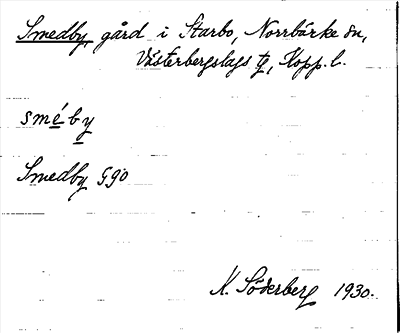 Smedby, gård i Starbo, Norrbärke sn,
Västerbergslags tg, Kopp. l.
sméby
Smedby G90
K. Söderberg 1930.